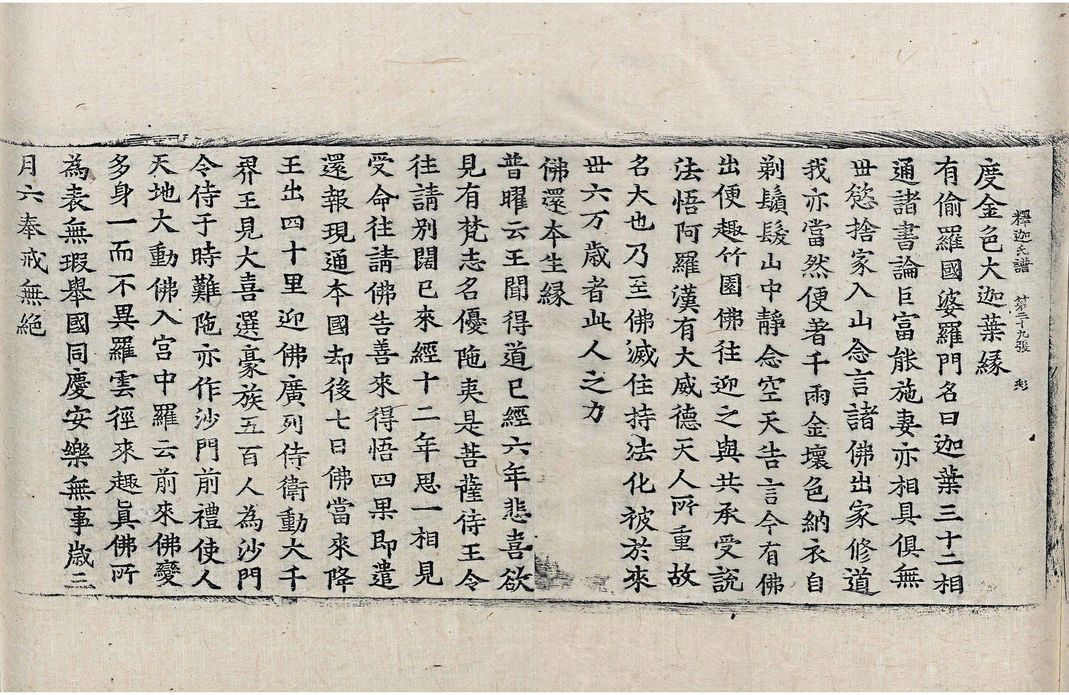 釋迦氏譜 第二十九張 彫
度金色大迦葉緣
有偷羅國婆羅門名曰迦葉三十二相
通諸書論巨富能施妻亦相具俱無
世慾捨家入山念言諸佛出家修道
我亦當然便著千兩金壞色納衣自
剃鬚髮山中靜念空天告言今有佛
出便趣竹園佛往迎之與共承受說
法悟阿羅漢有大威德天人所重故
名大也乃至佛滅住持法化被於來
世六万歲者此人之力
佛還本生緣
普曜云王聞得道已經六年悲喜欲
見有梵志名優陁夷是菩薩侍王令
往請別闊已來經十二年思一相見
受命往請佛告善來得悟四果即遣
還報現通本國却後七日佛當來降
王出四十里迎佛廣列侍衛動大千
界王見大喜選豪族五百人為沙門
令侍于時難陁亦作沙門前禮使人
天地大動佛入宮中羅云前來佛變
多身一而不異羅雲徑來趣真佛所
為表無瑕舉國同慶安樂無事歲三
月六奉戒無絕